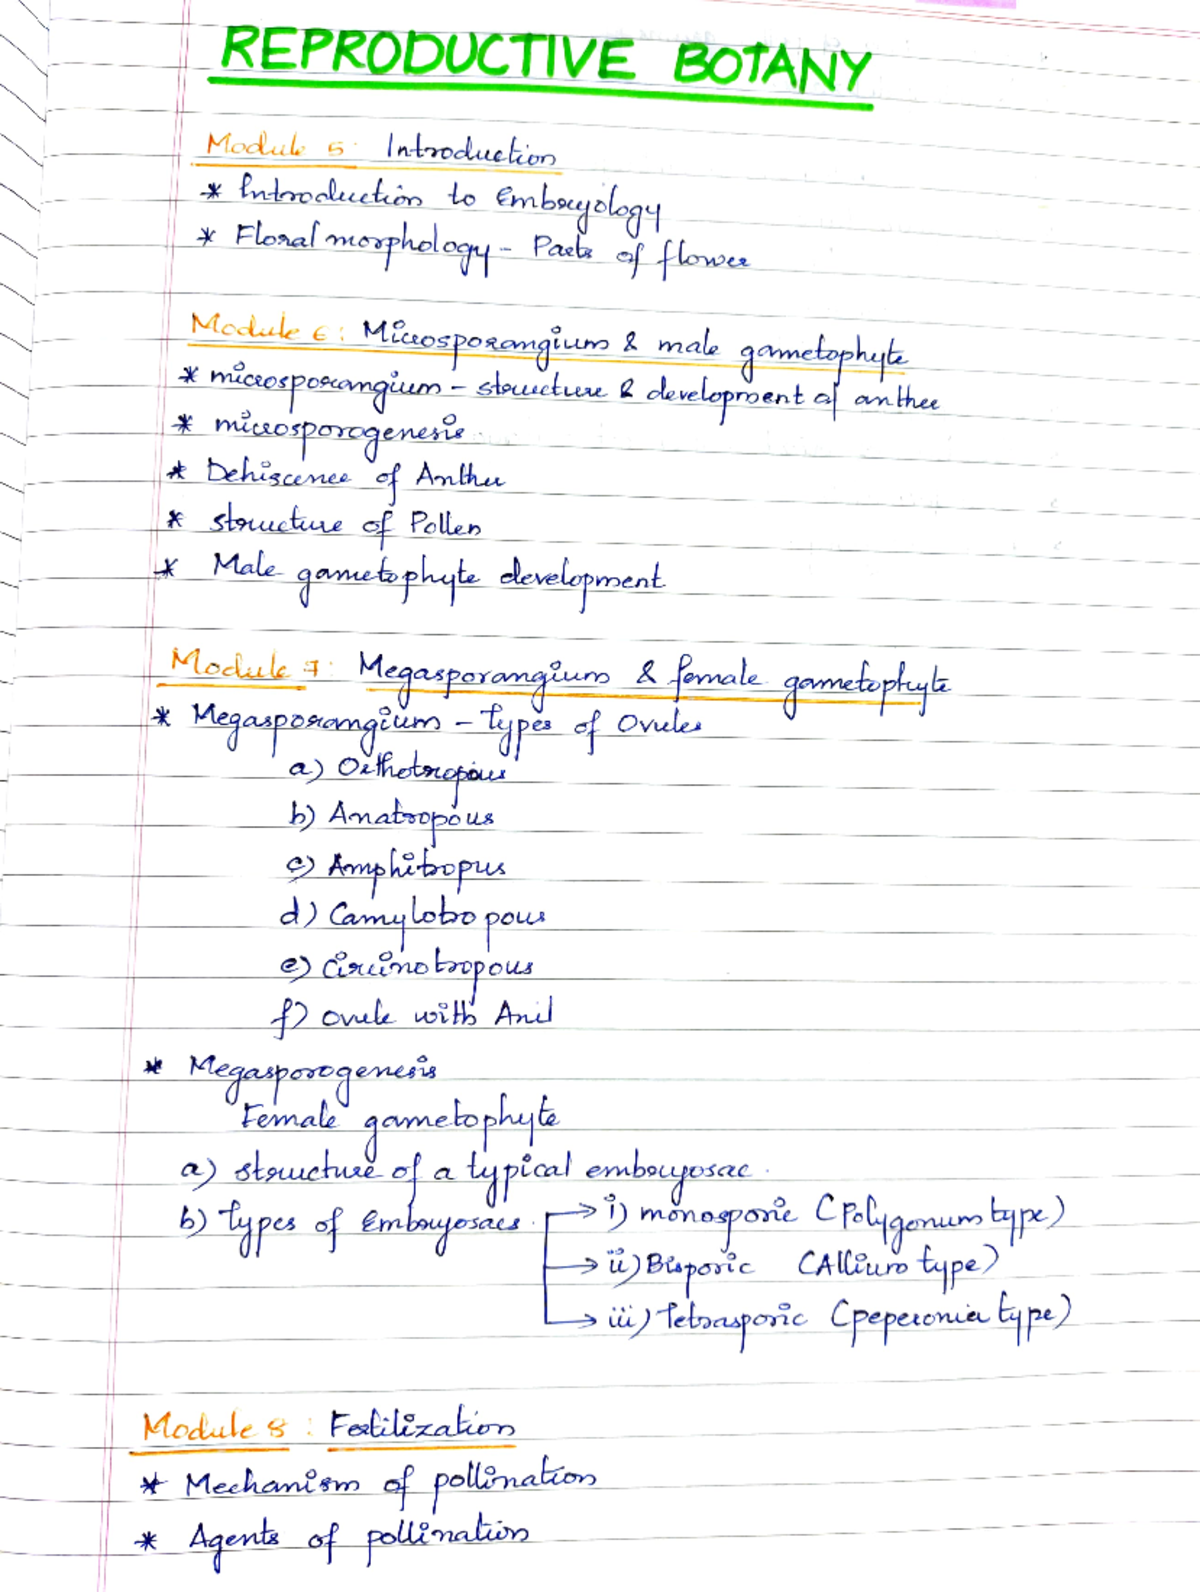 REPRODUCTIVE BOTANY
Module 5: Introduction
* Introduction to Embryology
* Floral morphology - Parts of flower
Module 6: Microsporangium & male gametophyte
* microsporangium - structure & development of anther
* microsporogenesis.
* Dehiscence of Anther
* structure of Pollen
* Male gametophyte development
Module 7: Megasporangium & female gametophyte
* Megasporangium - Types of Ovules
a) Orthotropous
b) Anatropous
c) Amphitropus
d) Camylotropous
e) Circinotropous
f) Ovule with Aril
* Megasporogenesis
Female gametophyte
a) structure of a typical embryosac.
b) Types of Embryosacs. → i) monosporic (Polygonum type)
→ ii) Bisporic (Allium type)
→ iii) Tetrasporic (peperomia type)
Module 8: Fertilization
* Mechanism of pollination
* Agents of pollination